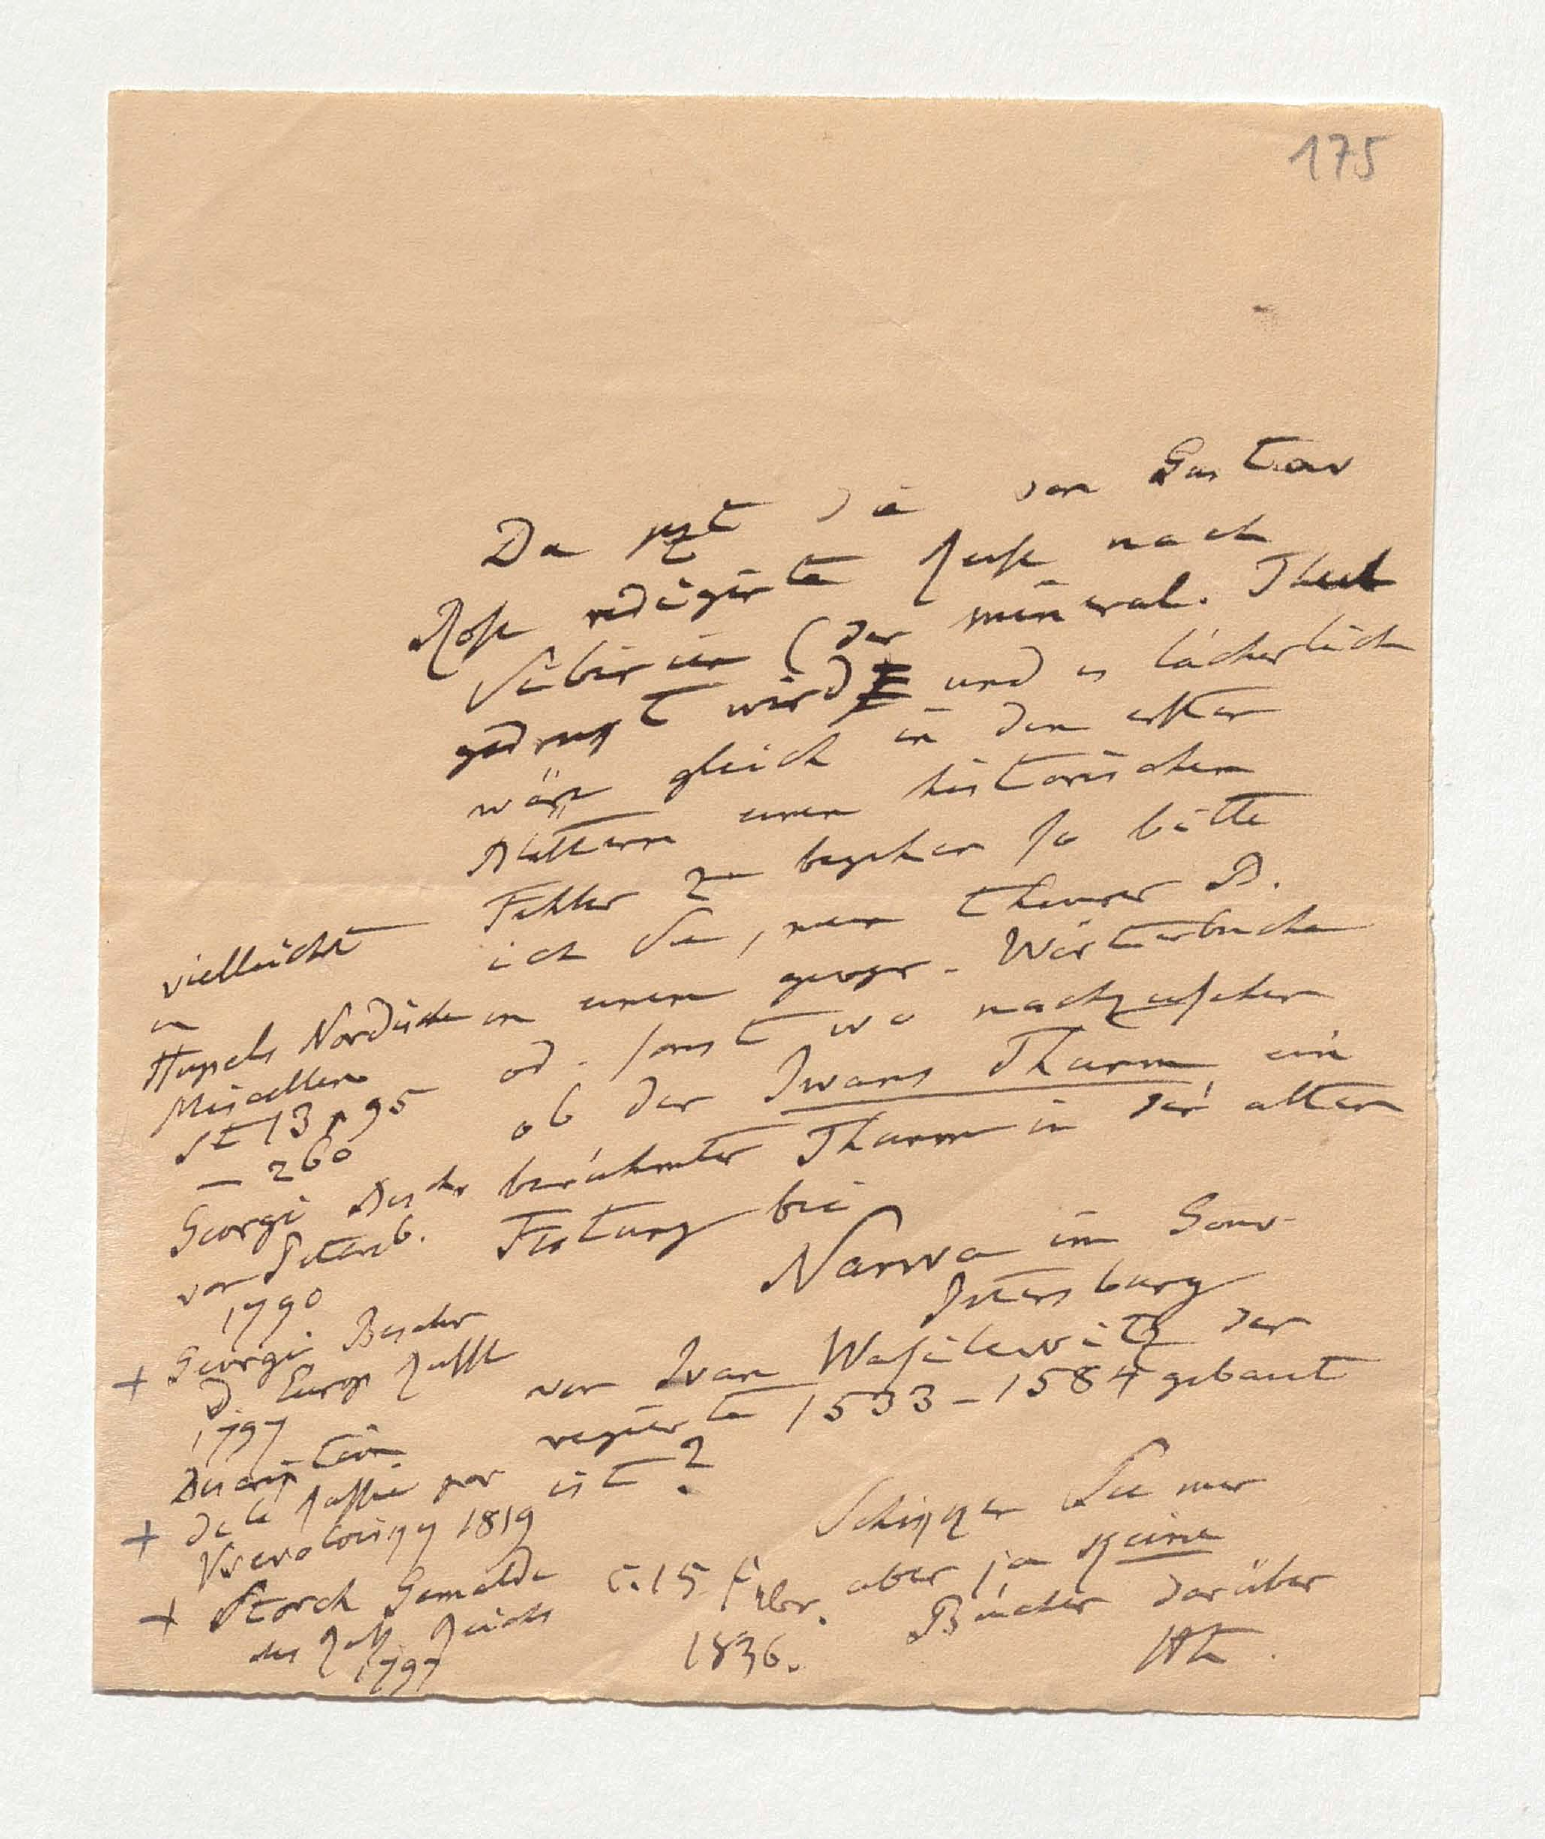 175
Da jezt die von Gustav
Rose redigirte Reise nach
Sibirien (der mineral. Theil
gedrukt wird) und es lächerlich
wäre gleich in den ersten
Blättern einen historischen
Fehler zu begehen so bitte
ich Sie, mein theurer B.
in einem geogr. Wörterbuche
od. sonst wo nachzusehen
ob der Iwans Thurm ein
berühmter Thurm in der alten
Festung bei
Narwa im Gouv.
Petersburg
von Ivan Wasilewitz der
regierte 1533–1584 gebaut
ist?
Schikken Sie mir
aber ja keine
Bücher darüber
Ht.
d. 15 Febr.
1836.
vielleicht
in
Hupels Nordische
Miscellen
St 13 p 95
– 260
Georgi Beschr
von Petersb.
1790
+ Georgi Beschr
d. Europ Russl
1797
Description
+ de la Russie par
Vsevoloisky 1819
+ Storch Gemälde
des Russ Reichs
1797